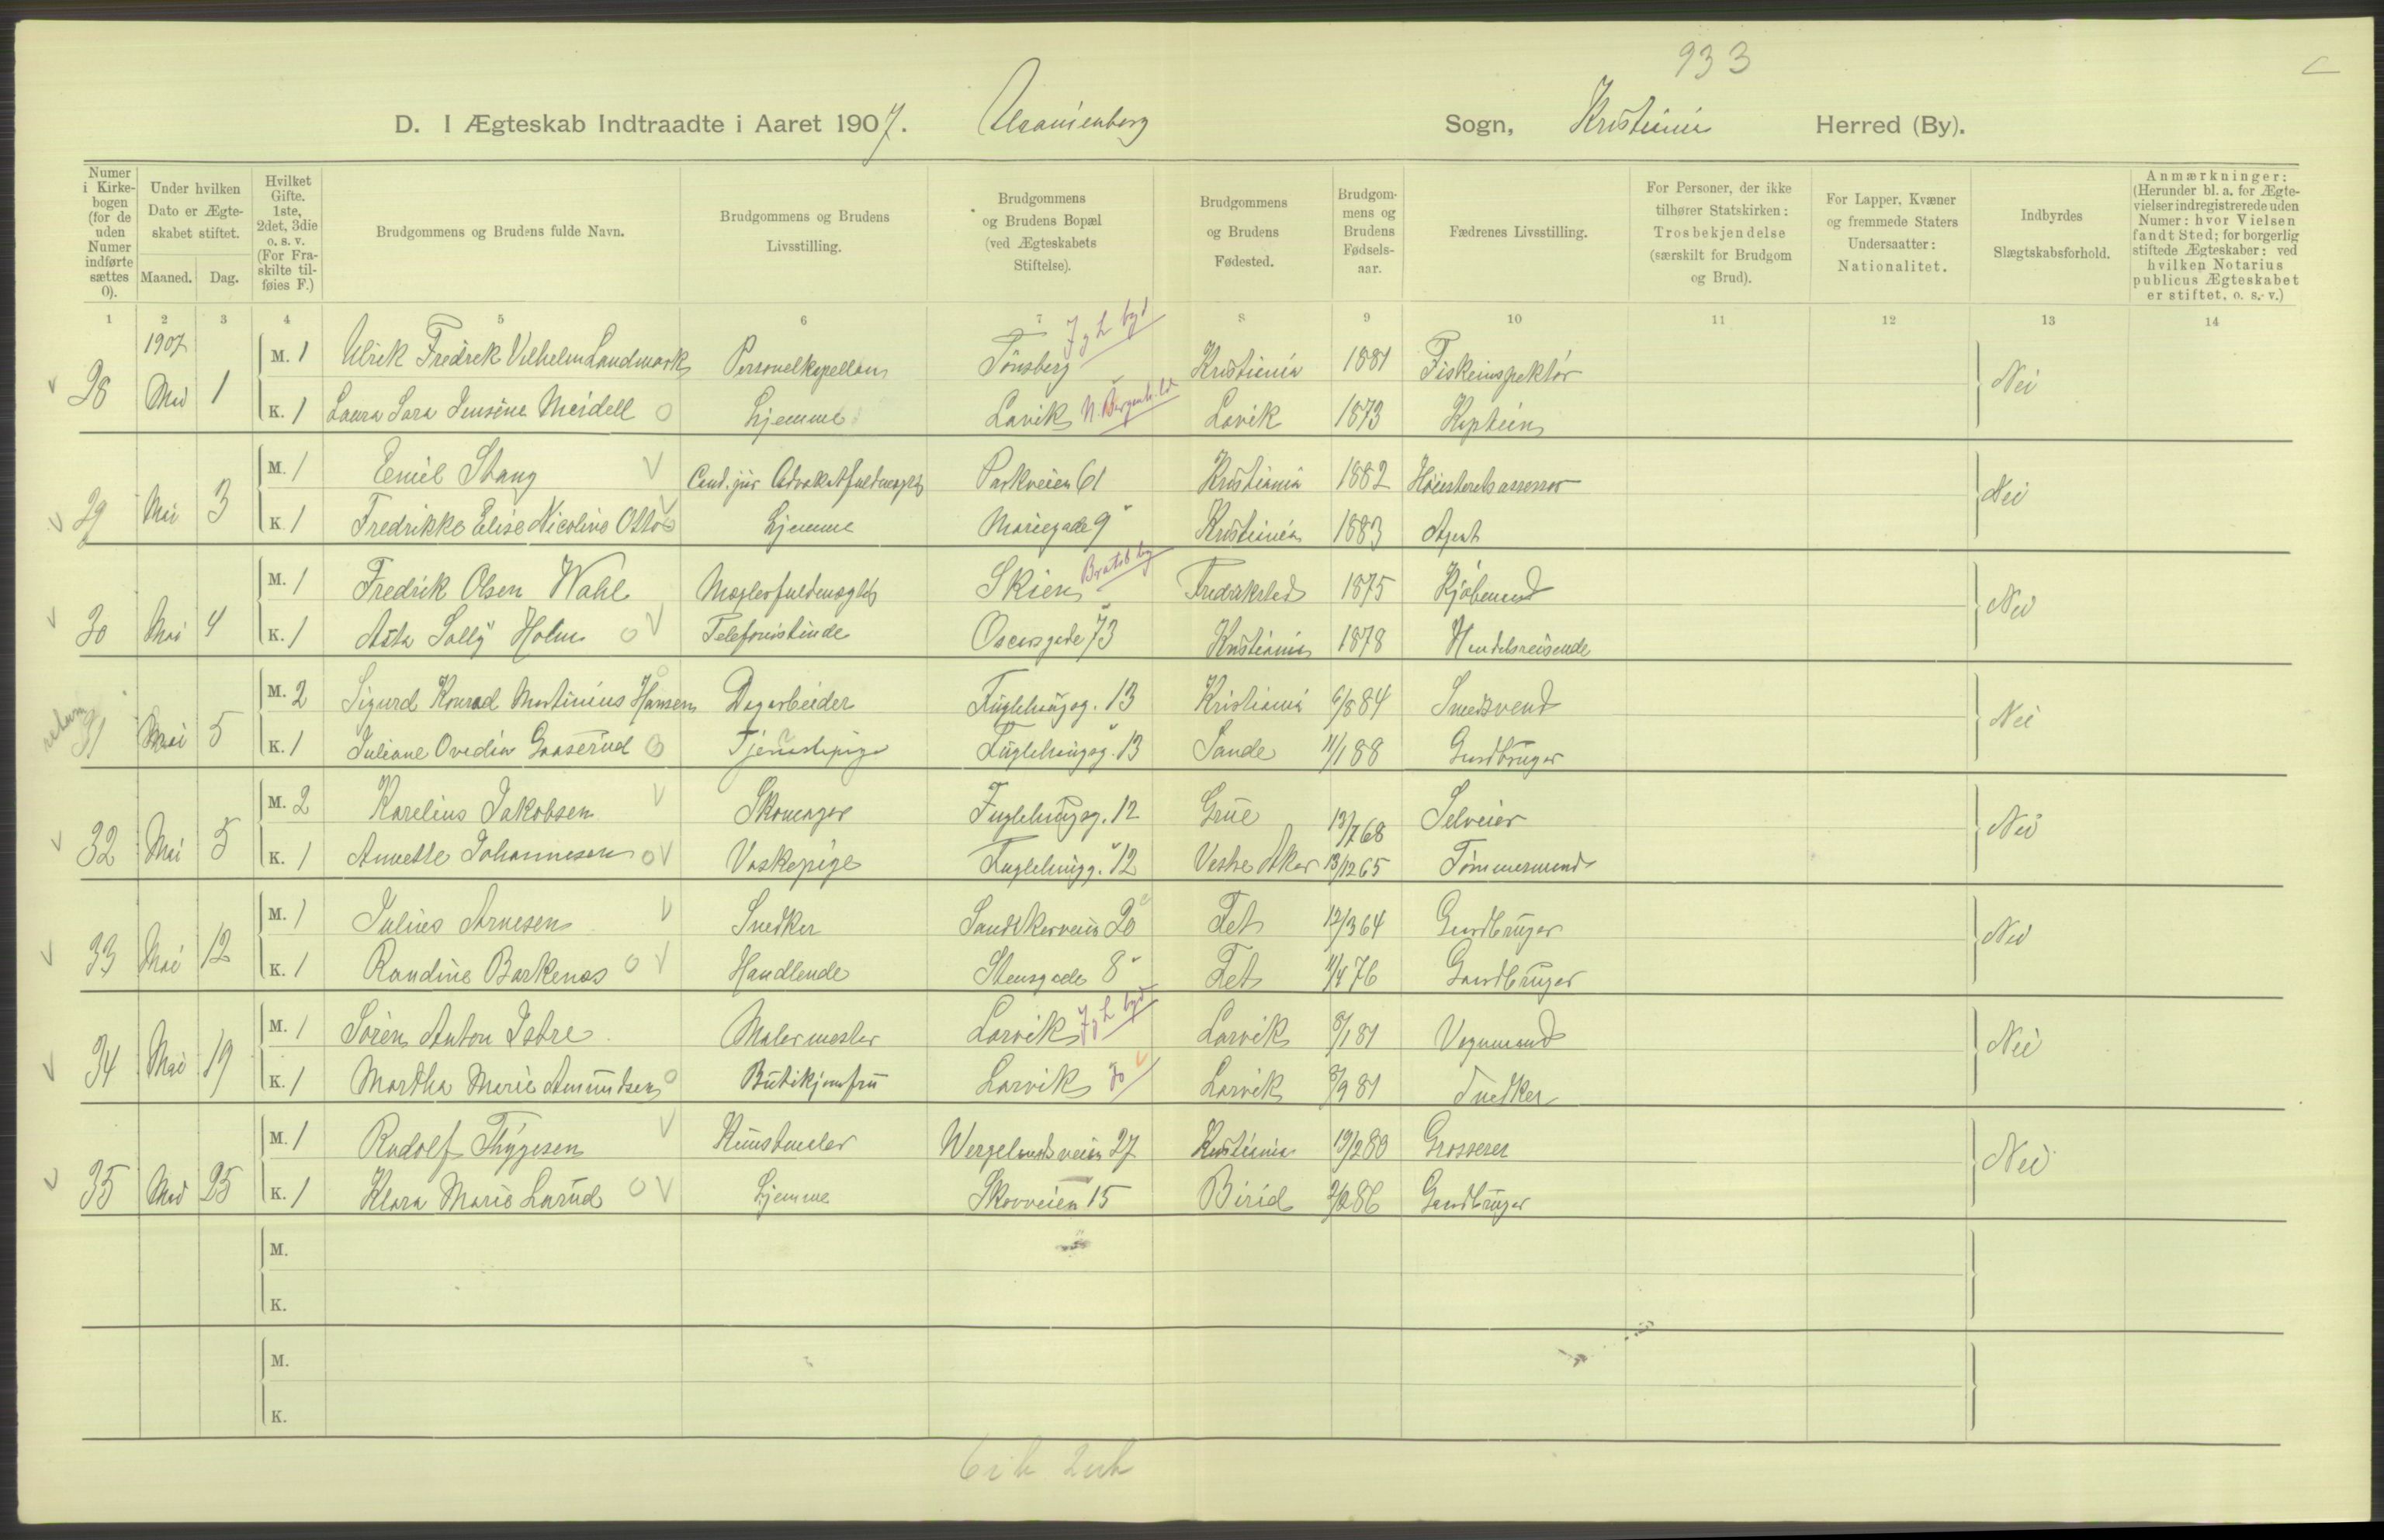 933
D. I Ægteskab Indtraadte i Aaret 1907. Uranienborg Sogn, Kristiania Herred (By).
Numer i Kirkebogen (for de uden Numer indførte sættes 0).
Under hvilken Dato er Ægteskabet stiftet.
Maaned. Dag.
Hvilket Gifte. 1ste, 2det, 3die o. s. v. (For Fraskilte tilføies F.)
Brudgommens og Brudens fulde Navn.
Brudgommens og Brudens Livsstilling.
Brudgommens og Brudens Bopæl (ved Ægteskabets Stiftelse).
Brudgommens og Brudens Fødested.
Brudgommens og Brudens Fødselsaar.
Fædrenes Livsstilling.
For Personer, der ikke tilhører Statskirken: Trosbekjendelse (særskilt for Brudgom og Brud).
For Lapper, Kvæner og fremmede Staters Undersaatter: Nationalitet.
Indbyrdes Slægtskabsforhold.
Anmærkninger: (Herunder bl. a. for Ægtevielser indregistrerede uden Numer: hvor Vielsen fandt Sted; for borgerlig stiftede Ægteskaber: ved hvilken Notarius publicus Ægteskabet er stiftet, o. s. v.)
1 2 3 4 5 6 7 8 9 10 11 12 13 14
1907
28 Mai 1 M. 1 Ulrik Fredrik Vilhelm Landmark Personelkapellan Tönsberg Kristiania 1881 Fiskeinspektör Nei
K. 1 Laura Sara Jensine Meidell Hjemme Lavik N. Bergenh. Lavik 1873 Kaptein
29 Mai 3 M. 1 Emil Stang Cand. jur Advokatfuldmægtig Parkveien 61 Kristiania 1882 Höiesteretsassessor Nei
K. 1 Fredrikke Elise Nicoline Otto Hjemme Mariegade 9 Kristiania 1883 Agent
30 Mai 4 M. 1 Fredrik Olsen Wahl Mæglerfuldmægtig Skien Bratsb Fredrikstad 1875 Kjöbmand Nei
K. 1 Asta Sally Holm Telefonistinde Oscarsgade 73 Kristiania 1878 Handelsreisende
31 Mai 5 M. 2 Sigurd Konrad Martinius Hansen Dagarbeider Fuglehaugsg. 13 Kristiania 6/8 84 Smedsvend Nei
K. 1 Juliane Ovedia Gaaserud Tjenestepige Fuglehaugsg. 13 Sande 11/1 88 Gardbruger
32 Mai 5 M. 2 Karelius Jakobsen Skomager Fuglehaugsg. 12 Grue 13/7 68 Selveier Nei
K. 1 Annette Johannesen Vaskepige Fuglehaugg. 12 Vestre Aker 13/12 65 Tömmermand
33 Mai 12 M. 1 Julius Arnesen Snedker Sandakerveien 20 Fet 12/3 64 Gardbruger Nei
K. 1 Randine Barkenæs Handlende Stensgade 8 Fet 11/4 76 Gardbruger
34 Mai 19 M. 1 Sören Anton Istre Malermester Larvik Larvik 8/1 81 Vognmand Nei
K. 1 Martha Marie Amundsen Butikjomfru Larvik Larvik 8/9 81 Snedker
35 Mai 25 M. 1 Rudolf Thygesen Kunstmaler Wergelandsveien 27 Kristiania 19/2 80 Grosserer Nei
K. 1 Klara Marie Larud Hjemme Skovveien 15 Birid 2/2 86 Gardbruger
M.
K.
M.
K.